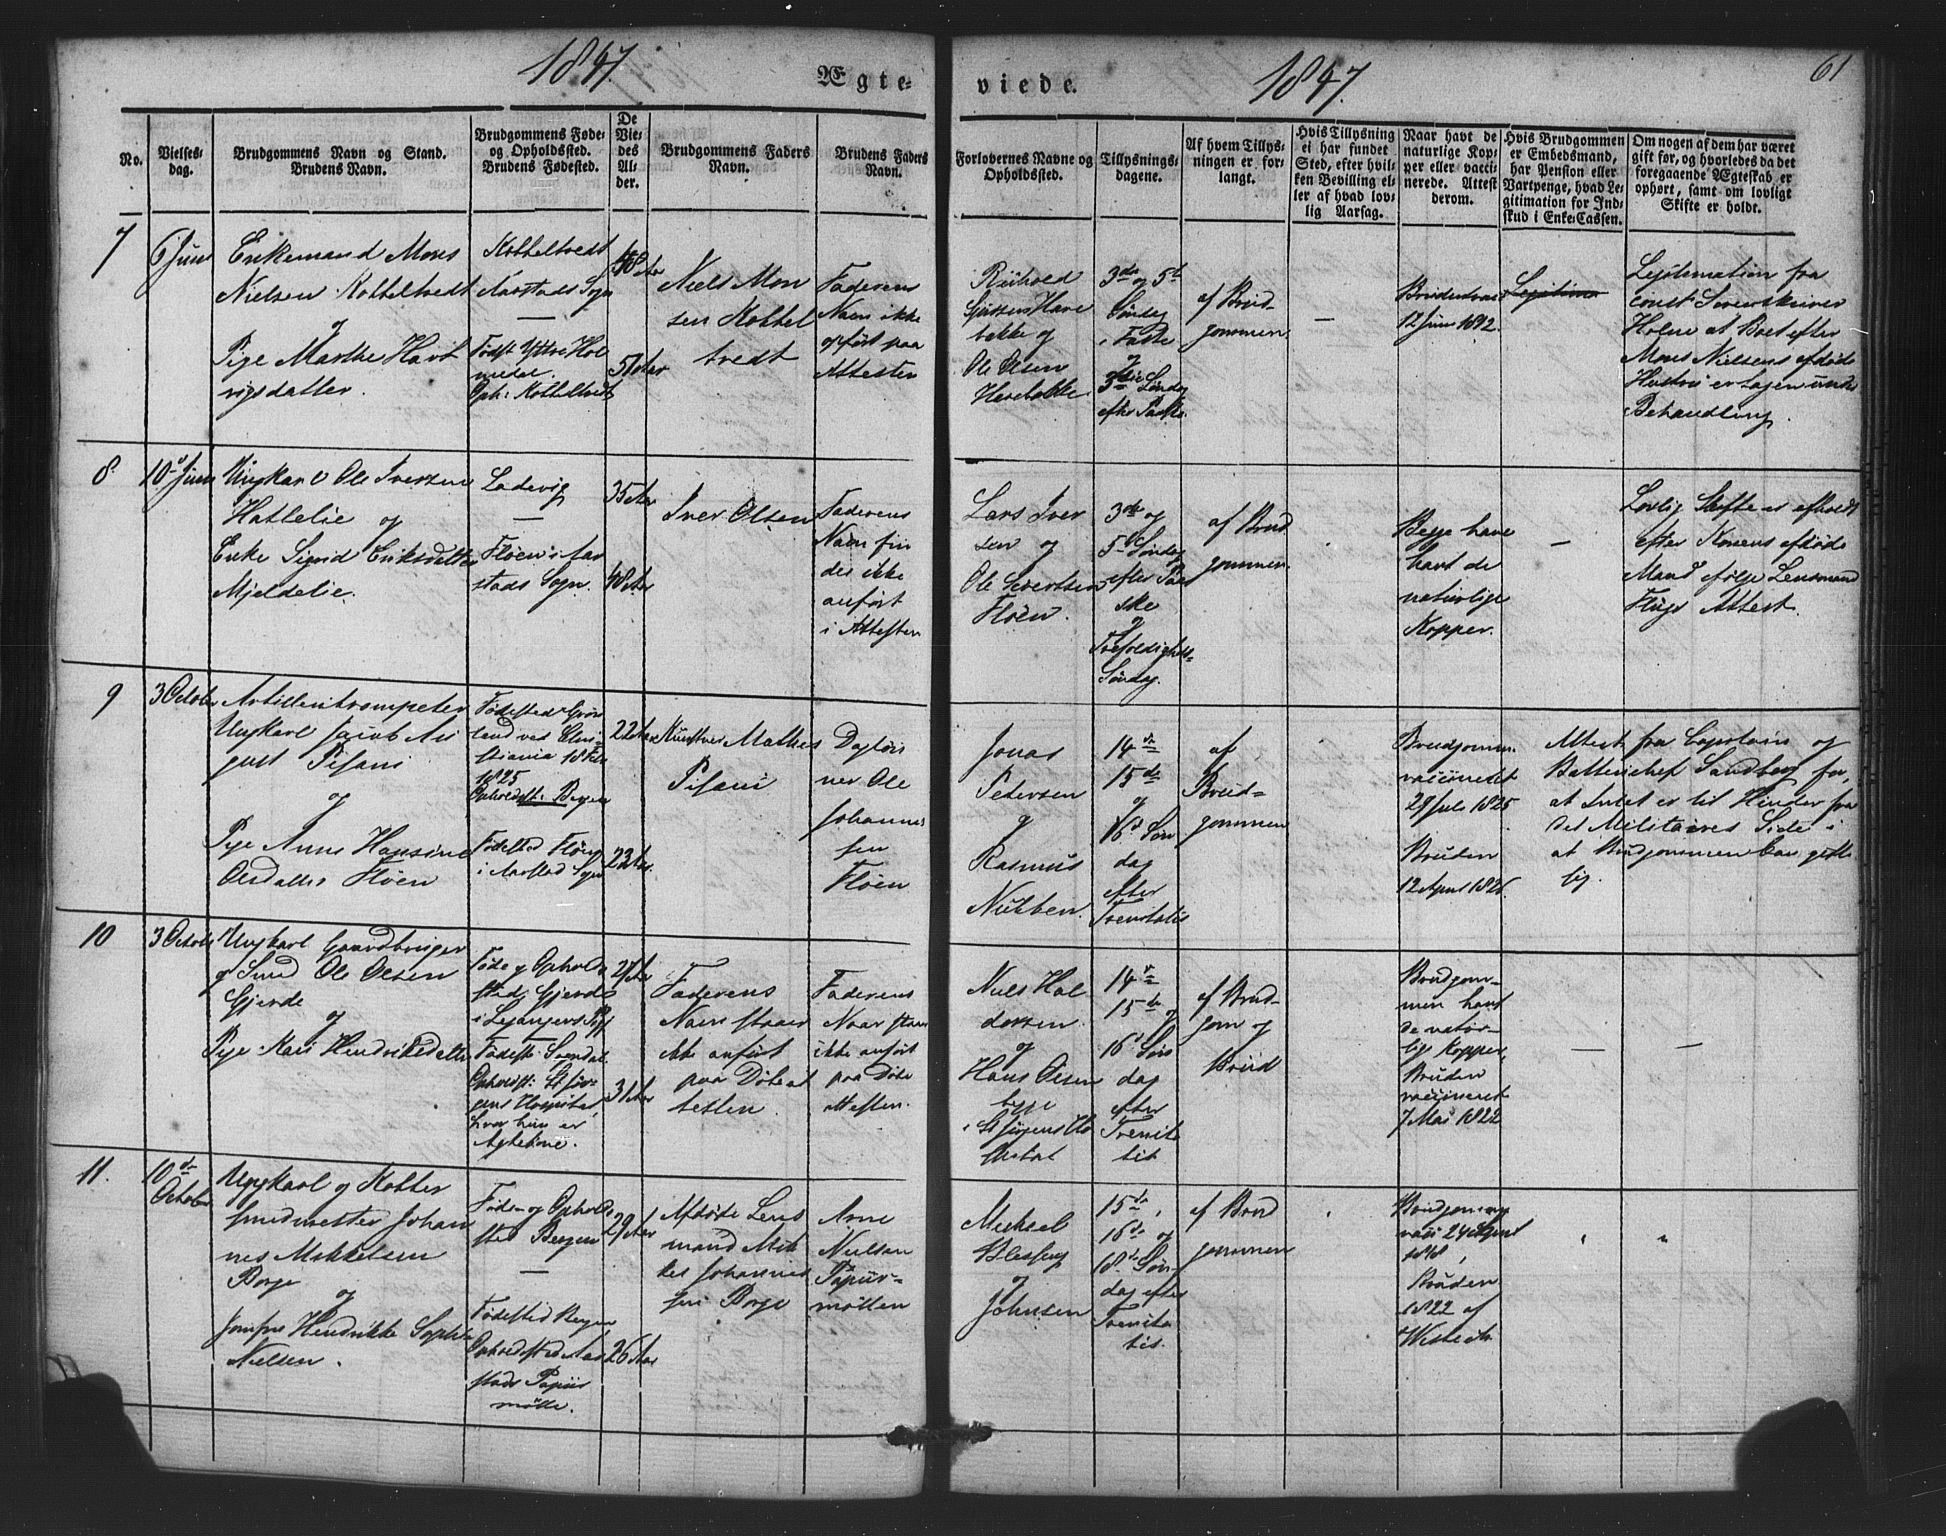 1847.
Ægte-
viede.
1847.
61
No.
Vielses-
dag.
Brudgommens Navn og Stand.
Brudens Navn.
Brudgommens Føde-
og Opholdssted.
Brudens Fødested.
De
Vie-
des
Al-
der.
Brudgommens Faders
Navn.
Brudens Faders
Navn.
Forlovernes Navne og
Opholdssted.
Tillysnings-
dagene.
Af hvem Tillys-
ningen er for-
langt.
Hvis Tillysning
ei har fundet
Sted, efter hvil-
ken Bevilling el-
ler af hvad lov-
lig Aarsag.
Naar havt de
naturlige Kop-
per eller vacci-
nerede. Attest
derom.
Hvis Brudgommen
er Embedsmand,
har Pension eller
Vartpenge, hvad Le-
gitimation for Ind-
skud i Enke-Cassen.
Om nogen af dem har været
gift før, og hvorledes da det
foregaaende Ægteskab er
ophørt, samt om lovligt
Skifte er holdt.
7
6 Juni
Enkemand Mons
Nielsen Kalteltvedt
og
Pige Marthe Havt
vigsdatter.
Aarstads Sogn
Født Yttre Hol
medal.
48 Aar
51 Aar
Niels Mon
sen Kottel
tvedt
Faderens
Navn ikke
opført paa
Attesten
Ole Olsen
3de og 5te
Søndag
i Faste
og
3die Søndag
efter Paaske.
af Brud-
gommen
—
12 Juni
Legitima
Legitimation fra
const. Sorenskriver
Holme at Boet efter
Mons Nielsens afdøde
Hustru er tagen under
Behandling.
8.
10de Juni
Ungkarl Ole Iversen
Hattelie og
Enke Sigrid Eriksdatter
Mjeldelie.
Ladevig
—
Fløen i Aar
stads Sogn.
35 Aar
48 Aar
Iver Olsen
Faderens
Navn fin
des ikke
anført
i Attesten
Lars Iver
sen og
Ole Sivertsen
Fløen.
3de og
5te Søndag
efter Paa
ske
og
Trefoldigheds-
Søndag.
af Brud
gommen.
Begge have
havt de
naturlige
Kopper.
—
Lovlig Skifte er afholdt
efter Konens afdøde
Mand ifølge Lensmand
Flugs Attest.
9
3 October
Artilleritrompeter
Ungkarl Jacob Au
gust Pisani
og
Pige Anne Hansine
Olsdatter Fløen
Fødested Grøn
land ved Chri-
stiania 18 Feb
1825
Opholdsst: Bergen
Fødested Fløen
i Aarstad Sogn
22 Aar
23 Aar.
Pisani
Dagløn
ner Ole
Johannes
sen
Fløen
Jonas
Petersen
og
Rasmus
Nubben.
14de
15de
og
16de Søn
dag
efter
Trenitatis
af
Brud-
gommen
Brudgomm.
vaccineret
29 Juli 1825
Bruden
12 April 1826.
Attest fra Capitain og
Batterichef Sandberg for,
at Intet er til Hinder fra
det Militaires Side i
at Brudgommen kan gifte
sig.
10
3 Octob.
Ungkarl Gaardbruger
og Smed Ole Olsen
Gjerde
og
Pige Kari Hendriksdatter
Føde og Opholds
sted: Gjerde
Fødest: Sogndal
Opholdst: St Jør-
gens Hospital,
hvor hun er
27 Aar
31 Aar
Faderens
Navn staaer
ikke anført
paa Døbeat
testen.
Faderens
Navn staaer
ikke anført
paa Døbe
attesten.
Niels Hal
dorsen
og
Hans Olsen
begge
i St Jørgens Ho
spital
14de
15de og
16de Søn
dag
efter
Trenita
tis
af Brud-
gom og
Brud
Brudgom-
men havt
de natur-
lige Kopper,
Bruden
vaccineret
7 Mai 1822
—
—
11.
10de
October
Ungkarl og Kobber
smedmester Johan
nes Mikkelsen
Borge
og
Jomfru Hendrikke Sophie
Nielsen.
Føde- og Opholds
sted Bergen
—
Fødested Bergen
Opholdsted Aar
stads Papiir
mølle.
29 Aar
26 Aar
Afdøde Lens
mand Mik
kel Johannes
sen Borge
Arne
Nielsen
Papiir-
møllen
Michael
og
Johnsen
15de,
16de og
18de Søn
dag efter
Trenita
tis.
af Brud
gommen
Brudgommen
vacc: 24 August
1818,
Bruden
1822 af